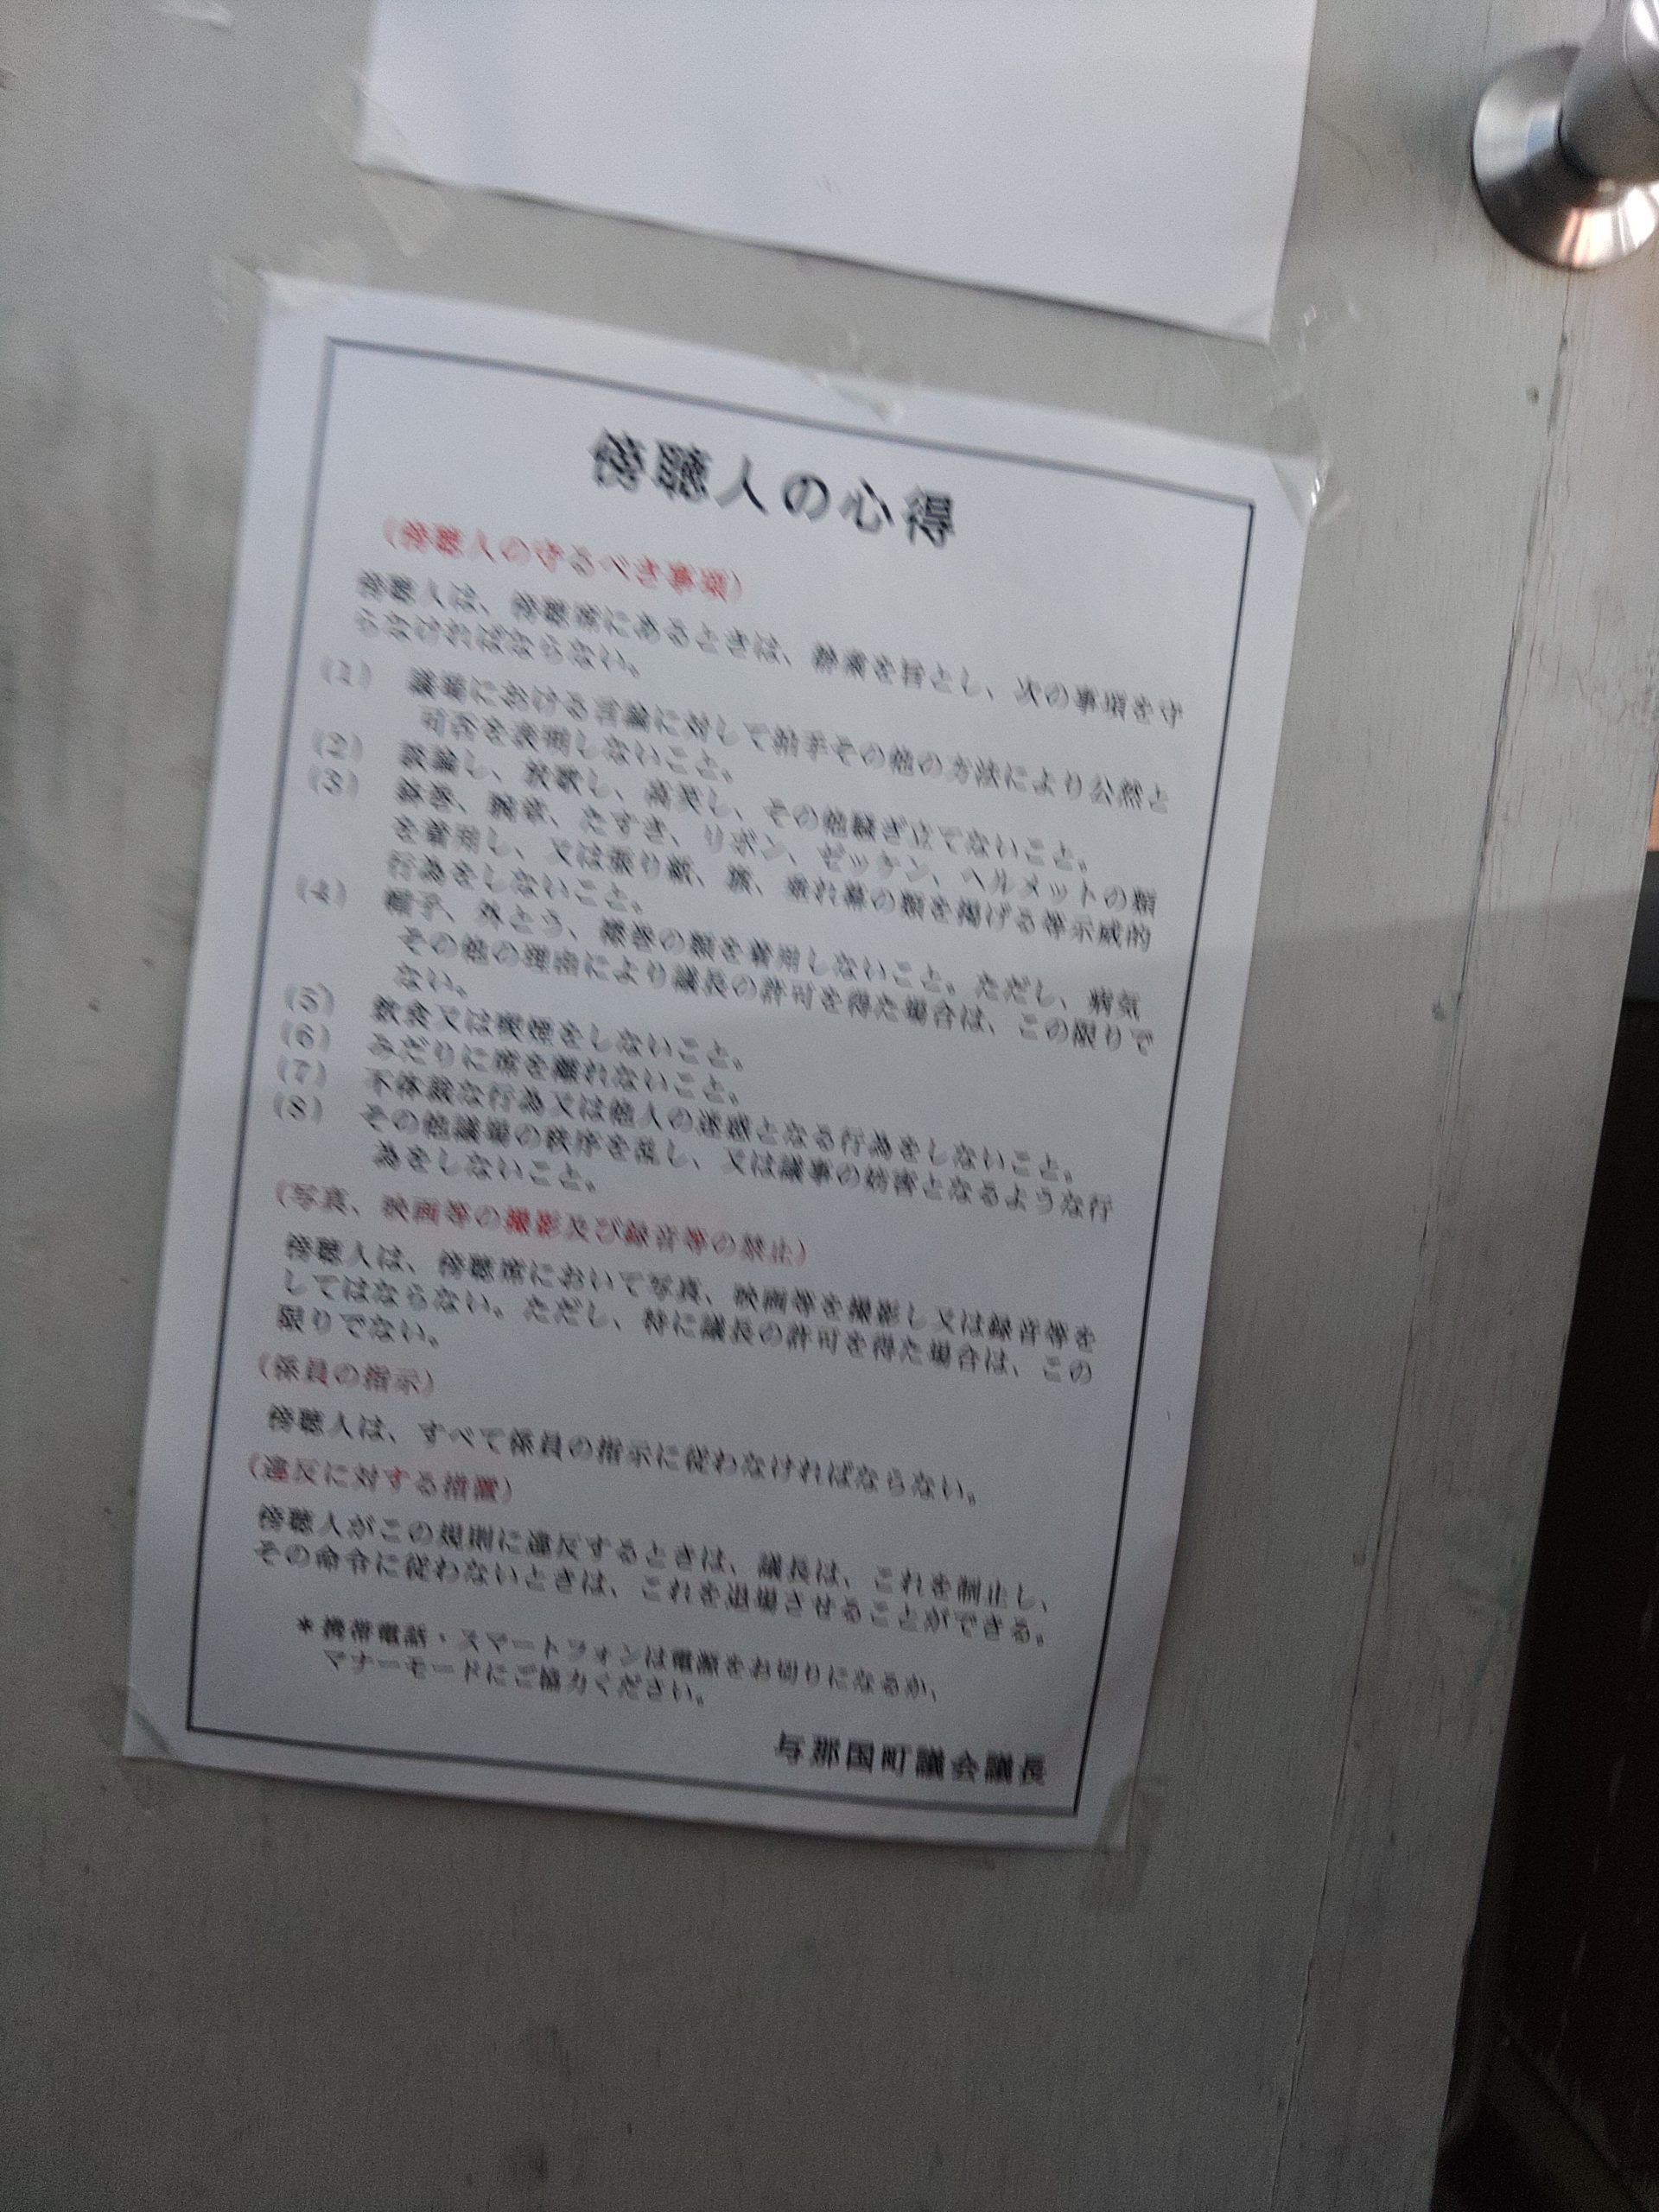 傍聴人の心得
(傍聴人の守るべき事項)
傍聴人は、傍聴席にあるときは、静粛を旨とし、次の事項を守
らなければならない。
(1) 議場における言論に対して拍手その他の方法により公然と
可否を表明しないこと。
(2) 談論し、放歌し、高笑し、その他騒ぎ立てないこと。
(3) 鉢巻、腕章、たすき、リボン、ゼッケン、ヘルメットの類
を着用し、又は張り紙、旗、垂れ幕の類を掲げる等示威的
行為をしないこと。
(4) 帽子、外とう、襟巻の類を着用しないこと。ただし、病気
その他の理由により議長の許可を得た場合は、この限りで
ない。
(5) 飲食又は喫煙をしないこと。
(6) みだりに席を離れないこと。
(7) 不体裁な行為又は他人の迷惑となる行為をしないこと。
(8) その他議場の秩序を乱し、又は議事の妨害となるような行
為をしないこと。
(写真、映画等の撮影及び録音等の禁止)
傍聴人は、傍聴席において写真、映画等を撮影し又は録音等を
してはならない。ただし、特に議長の許可を得た場合は、この
限りでない。
(係員の指示)
傍聴人は、すべて係員の指示に従わなければならない。
(違反に対する措置)
傍聴人がこの規則に違反するときは、議長は、これを制止し、
その命令に従わないときは、これを退場させることができる。
*携帯電話・スマートフォンは電源をお切りになるか、
マナーモードにご協力ください。
与那国町議会議長